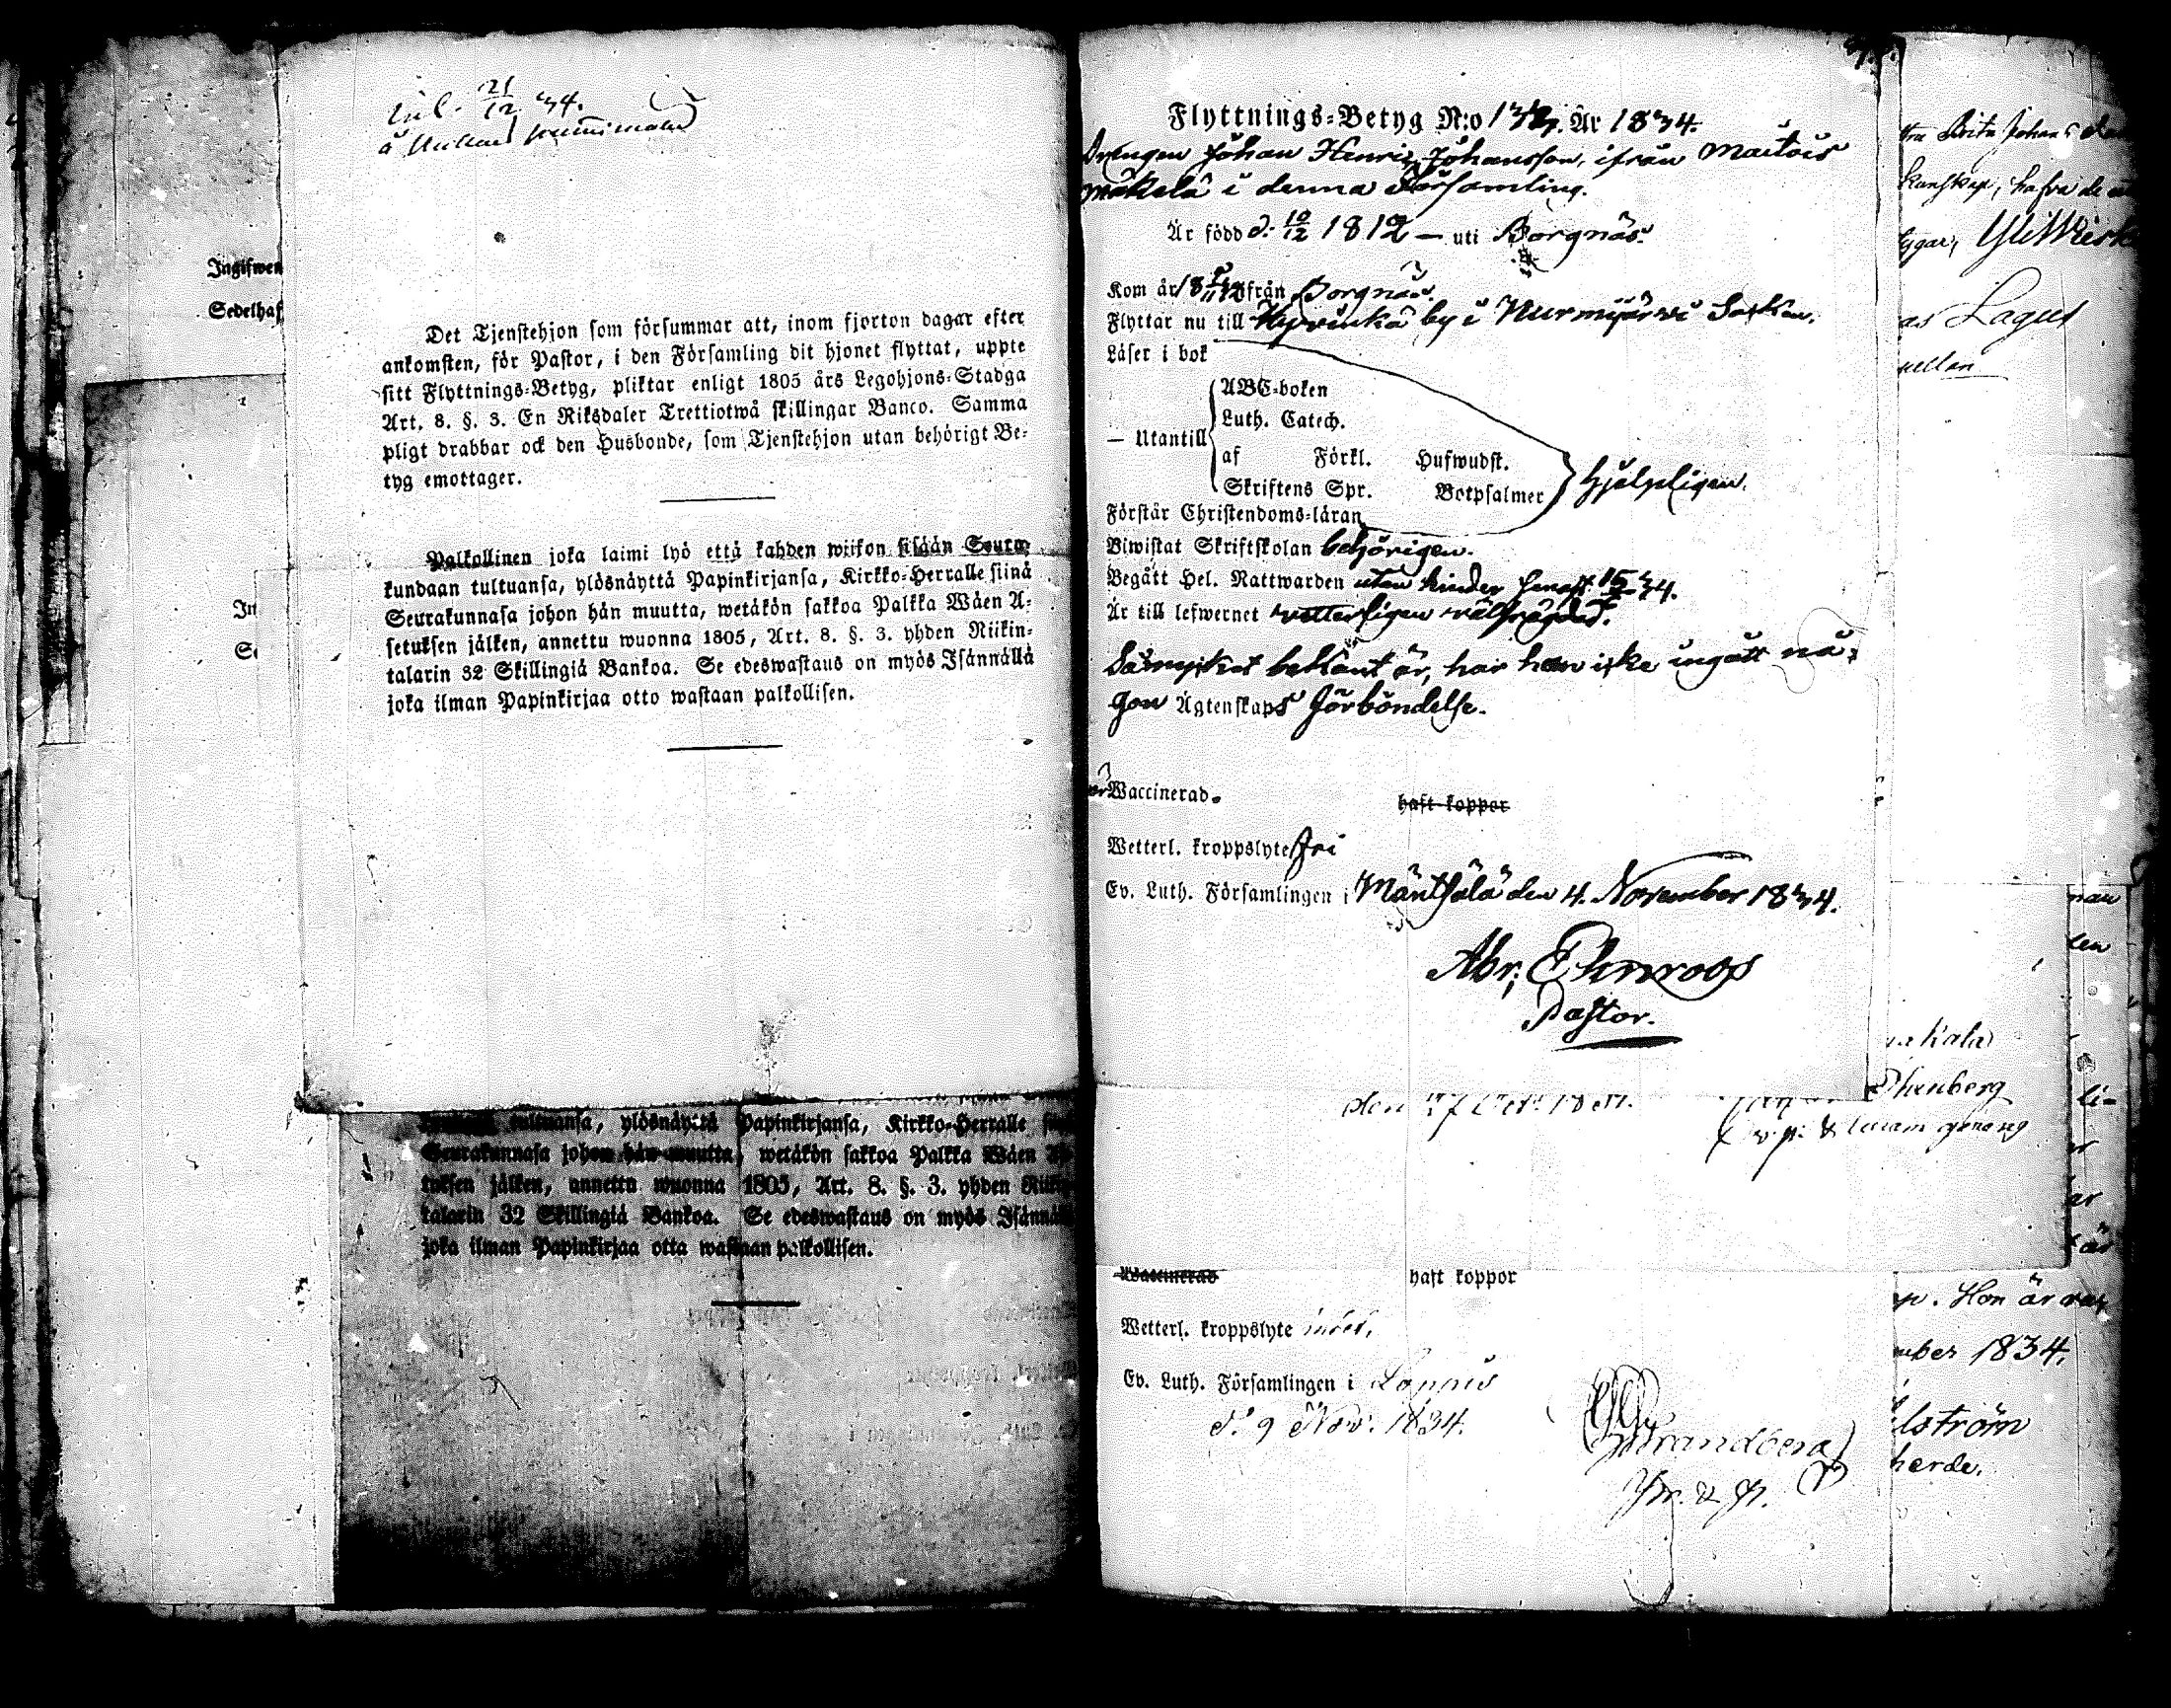 Inl. 21/12 34.
å
Ingifwen
Sedelhaf
Det Tjenstehjon som försummar att, inom fjorton dagar efter
ankomsten, för Pastor, i den Församling dit hjonet flyttat, uppte
sitt Flyttnings-Betyg, pliktar enligt 1805 års Legohjons-Stadga
Art. 8. §. 3. En Riksdaler Trettiotwå skillingar Banco. Samma
pligt drabbar ock den Husbonde, som Tjenstehjon utan behörigt Be-
tyg emottager.
Palkollinen joka laimi lyö että kahden wiikon sisään Seura-
kundaan tultuansa, ylösnäyttä Papinkirjansa, Kirkko-Herralle siinä
Seurakunnasa johon hän muutta, wetäkön sakkoa Palkka Wäen A-
setuksen jälken, annettu wuonna 1805, Art. 8. §. 3. yhden Riikin-
talarin 32 Skillingiä Bankoa. Se edeswastaus on myös Isännällä
joka ilman Papinkirjaa otto wastaan palkollisen.
tultuansa, ylösnäyttä Papinkirjansa, Kirkko-Herralle
Seurakunnasa johon hän muutta, wetäkön sakkoa Palkka Wäen
tuksen jälken, annettu wuonna 1805, Art. 8. §. 3. yhden
talarin 32 Skillingiä Bankoa. Se edeswastaus on myös
joka ilman Papinkirjaa otta wastaan palkollisen.
Flyttnings-Betyg N:o År 1834.
Drengen Johan Henric Johansson, ifrån Maitois
Mäkelä i denna Församling.
Är född d. 10/12 1812 — uti Borgnäs.
Kom år från Borgnäs.
Flyttar nu till Hyvinkä by i Nurmijärwi Sockn.
Läser i bok
ABC-boken
Luth. Catech.
— Utantill
af Förkl. Hufwudst.
Skriftens Spr. Botpsalmer
hjelpligen.
Förstår Christendoms-läran
Biwistat Skriftskolan behörigen.
Begått Hel. Nattwarden utan hinder senast 34.
Är till lefwernet wetterligen wälfrägdad.
Såmycket bekant är, har han icke ingått nå-
gon Ägtenskaps förbindelse.
är Waccinerad. haft koppor
Wetterl. kroppslyte fri
Ev. Luth. Församlingen i Mäntsälä den 4. November 1834.
Abr. Ehnroos
Pastor.
Waccinerad haft koppor
Wetterl. kroppslyte intet.
Ev. Luth. Församlingen i Loppis
d. 9 Nov. 1834.
Strandberg
Brita Johans
kunskap, hafva de
Lagus
Hon är
1834.